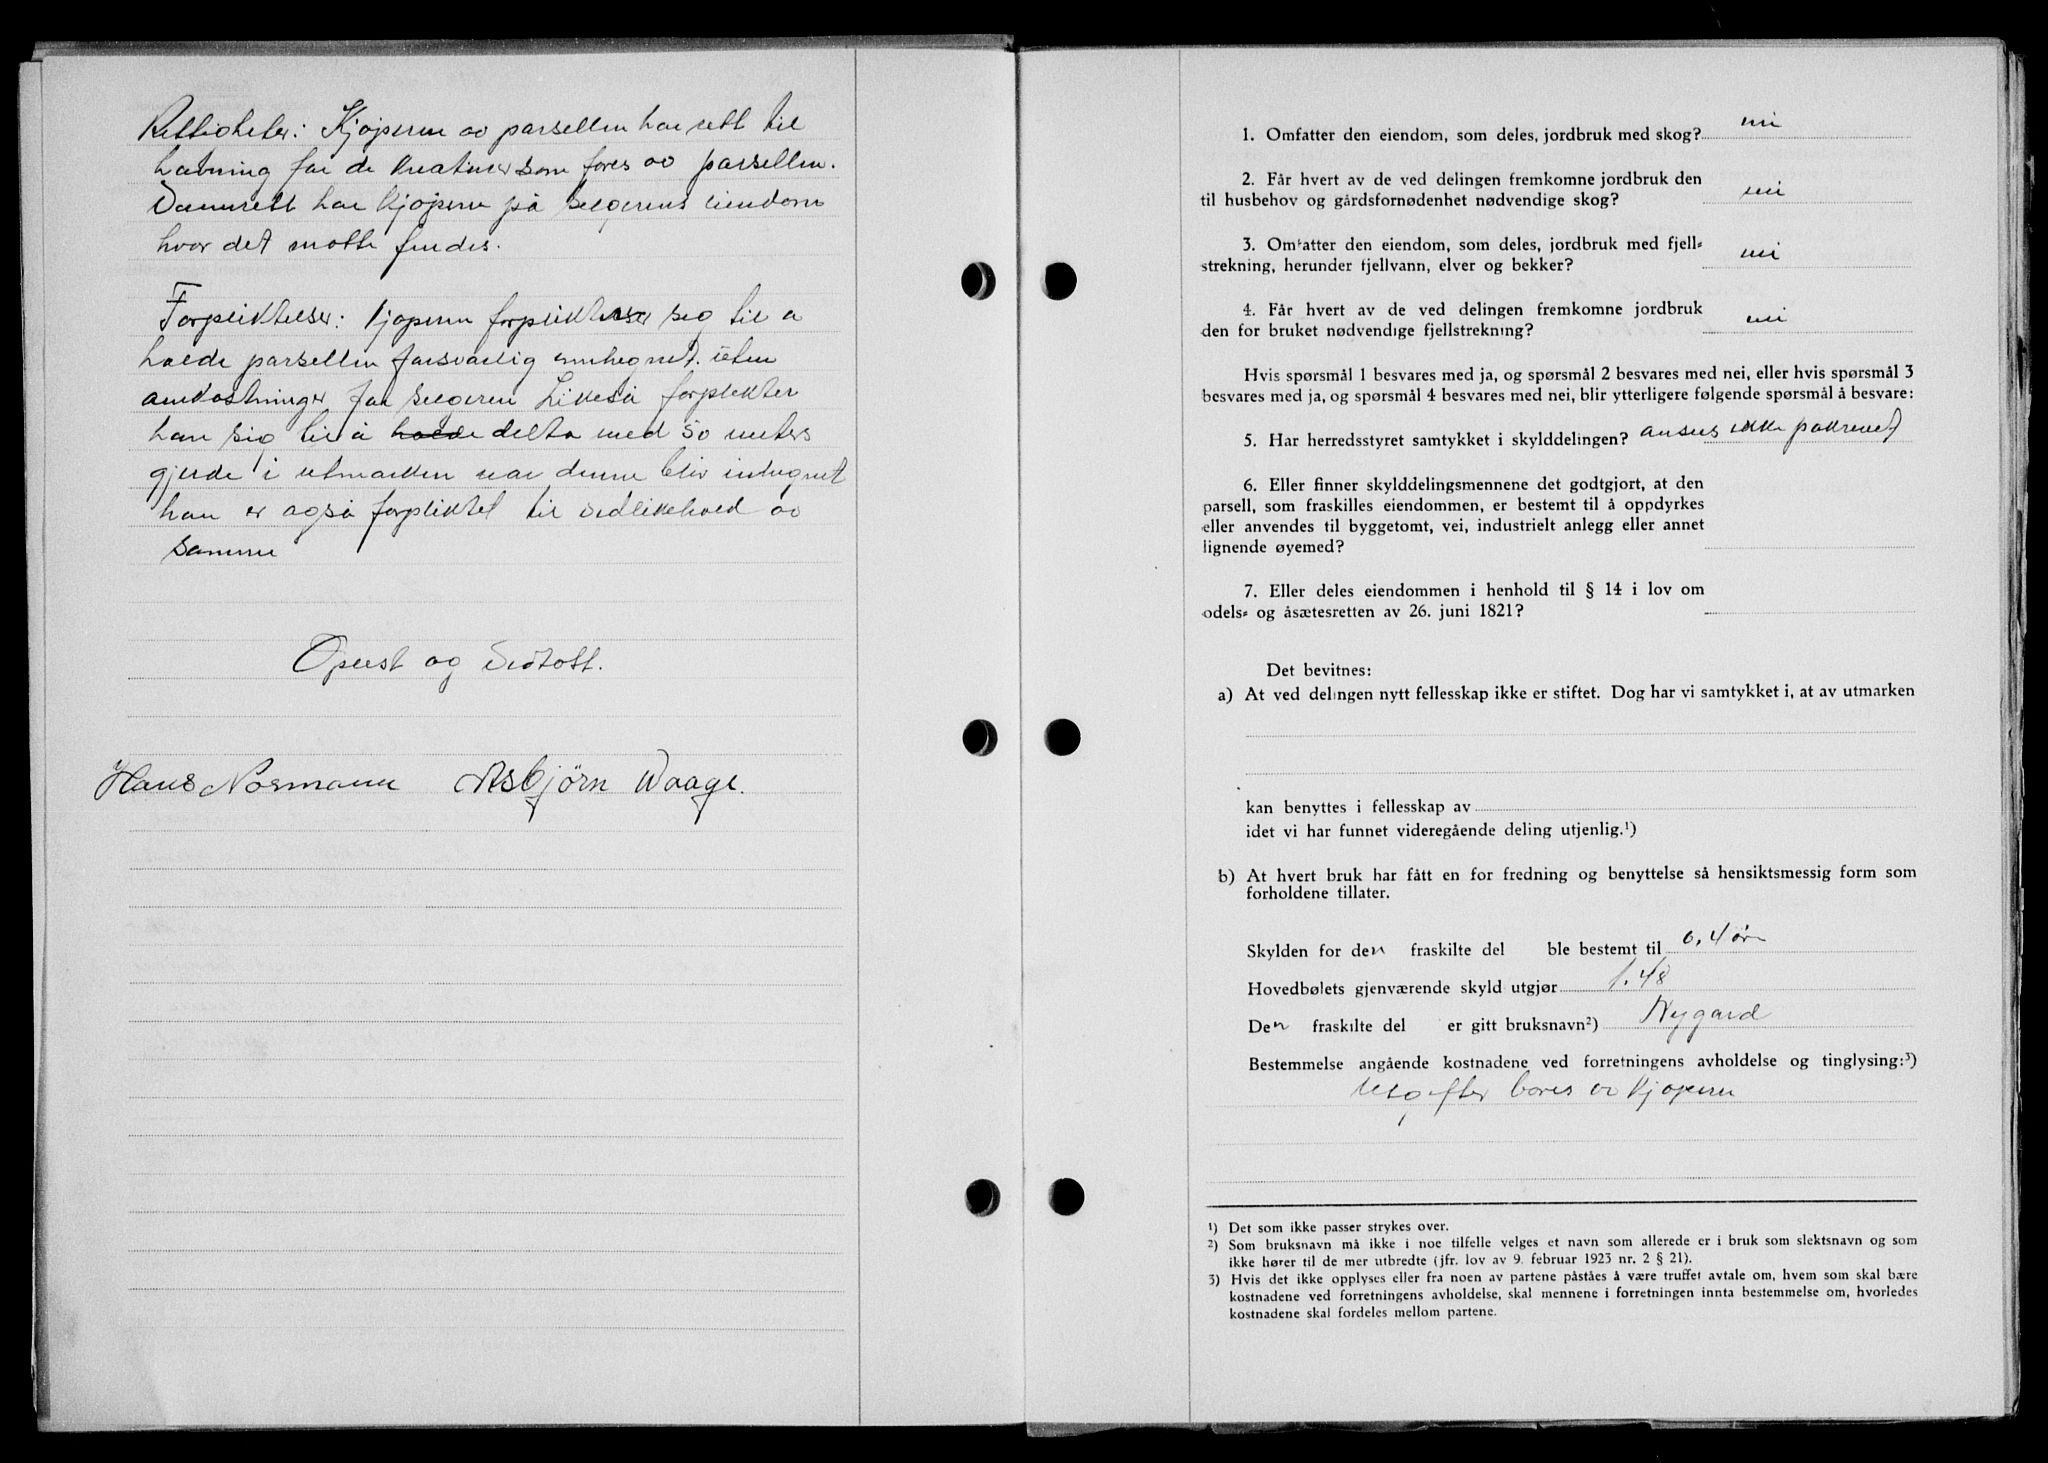 Rettigheter: Kjøperen av parsellen har rett til
havning for de kreaturer som fores av parsellen.
Vannrett har kjøperen på selgerens eiendom
hvor det måtte findes.
Forpliktelser: Kjøperen forplikter sig til a
holde parsellen forsvarlig innhegnet uten
omkostninger for selgeren Likeså forplikter
han sig til å holde delta med 50 meters
gjerde i utmarken nar denne bliv inhegnet
han er også forpliktet til vedlikehold av
samme
Oplest og vedtatt.
Hans Normann Asbjørn Waage.
1. Omfatter den eiendom, som deles, jordbruk med skog? nei
2. Får hvert av de ved delingen fremkomne jordbruk den
til husbehov og gårdsfornødenhet nødvendige skog? nei
3. Omfatter den eiendom, som deles, jordbruk med fjell-
strekning, herunder fjellvann, elver og bekker? nei
4. Får hvert av de ved delingen fremkomne jordbruk
den for bruket nødvendige fjellstrekning? nei
Hvis spørsmål 1 besvares med ja, og spørsmål 2 besvares med nei, eller hvis spørsmål 3
besvares med ja, og spørsmål 4 besvares med nei, blir ytterligere følgende spørsmål å besvare:
5. Har herredsstyret samtykket i skylddelingen? anses ikke påkrevet
6. Eller finner skylddelingsmennene det godtgjort, at den
parsell, som fraskilles eiendommen, er bestemt til å oppdyrkes
eller anvendes til byggetomt, vei, industrielt anlegg eller annet
lignende øyemed?
7. Eller deles eiendommen i henhold til § 14 i lov om
odels- og åsætesretten av 26. juni 1821?
Det bevitnes:
a) At ved delingen nytt fellesskap ikke er stiftet. Dog har vi samtykket i, at av utmarken
kan benyttes i fellesskap av
idet vi har funnet videregående deling utjenlig.¹)
b) At hvert bruk har fått en for fredning og benyttelse så hensiktsmessig form som
forholdene tillater.
Skylden for den fraskilte del ble bestemt til 0,4 øre
Hovedbølets gjenværende skyld utgjør 1.48
Den fraskilte del er gitt bruksnavn²) Nygard
Bestemmelse angående kostnadene ved forretningens avholdelse og tinglysing:³)
Utgifter bæres av kjøperen
¹) Det som ikke passer strykes over.
²) Som bruksnavn må ikke i noe tilfelle velges et navn som allerede er i bruk som slektsnavn og som
ikke hører til de mer utbredte (jfr. lov av 9. februar 1923 nr. 2 § 21).
³) Hvis det ikke opplyses eller fra noen av partene påståes å være truffet avtale om, hvem som skal bære
kostnadene ved forretningens avholdelse, skal mennene i forretningen innta bestemmelse om, hvorledes
kostnadene skal fordeles mellom partene.